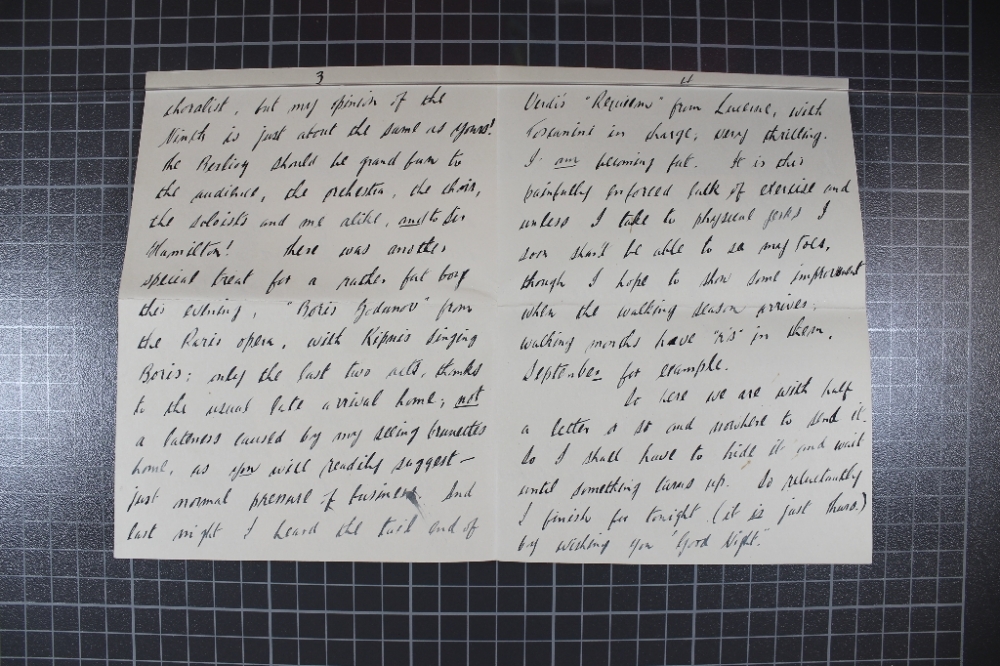 3
choralist, but my opinion of the
Ninth is just about the same as yours!
the Berlioz should be grand fun to
the audience, the orchestra, the choir,
the soloists and me alike, and to Sir
Hamilton! There was another
special treat for a rather fat boy
this evening, "Boris Godunov" from
the Paris opera, with Kipnis singing
Boris; only the last two acts, thanks
to the usual late arrival home; not
a lateness caused by my seeing brunettes
home, as you will readily suggest —
just normal pressure of business. And
last night I heard the tail end of
4
Verdi's "Requiem" from Lucerne, with
Toscanini in charge; very thrilling.
I am becoming fat. It is this
painfully enforced lack of exercise and
unless I take to physical jerks I
soon shan't be able to see my toes,
though I hope to show some improvement
when the walking season arrives.
walking months have "r's" in them,
September for example.
So here we are with half
a letter or so and nowhere to send it.
So I shall have to hide it and wait
until something turns up. So reluctantly
I finish for tonight (it is just thurs.)
by wishing you "Good Night."